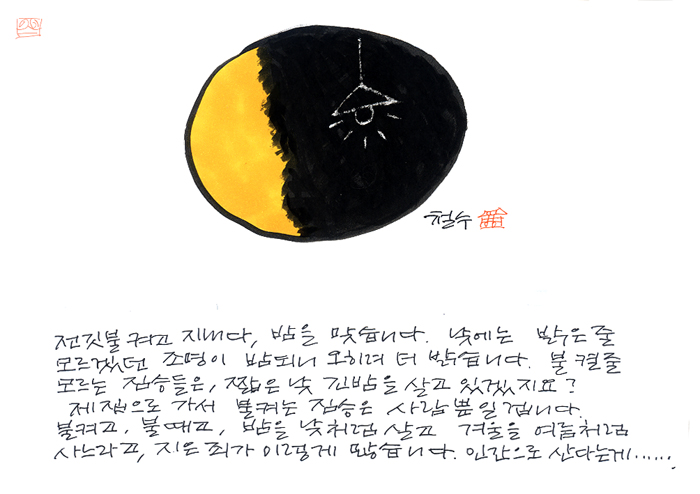 철수
전깃불 켜고 지내다, 밤을 맞습니다. 낮에는 밝은 줄
모르겠던 조명이 밤되니 오히려 더 밝습니다. 불 켤줄
모르는 짐승들은, 짧은 낮 긴밤을 살고 있겠지요?
제 집으로 가서 불켜는 짐승은 사람 뿐 일겁니다.
불켜고, 불때고, 밤을 낮처럼 살고 겨울을 여름처럼
사느라고, 지은 죄가 이렇게 많습니다. 인간으로 산다는게……